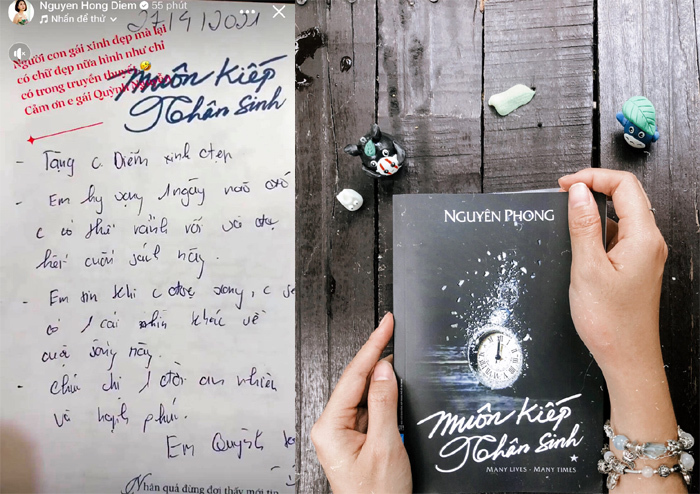 Nguyen Hong Diem 55 phút
Nhấn để thử
27/4/2021
Người con gái xinh đẹp mà lại
có chữ đẹp nữa hình như chỉ
có trong truyền thuyết
Cảm ơn e gái Quỳnh
Muôn Kiếp
Nhân Sinh
- Tặng c Diễm xinh đẹp
- Em hy vọng 1 ngày nào đó
c có thể rảnh rỗi và đọc
hết cuốn sách này.
- Em tin khi c đọc xong, c sẽ
có 1 cái nhìn khác về
cuộc sống này.
- chúc chị 1 đời an nhiên
và hạnh phúc.
Em Quỳnh
Nhân quả đừng đợi thấy mới tin
NGUYÊN PHONG
Muôn Kiếp
Nhân Sinh
MANY LIVES - MANY TIMES